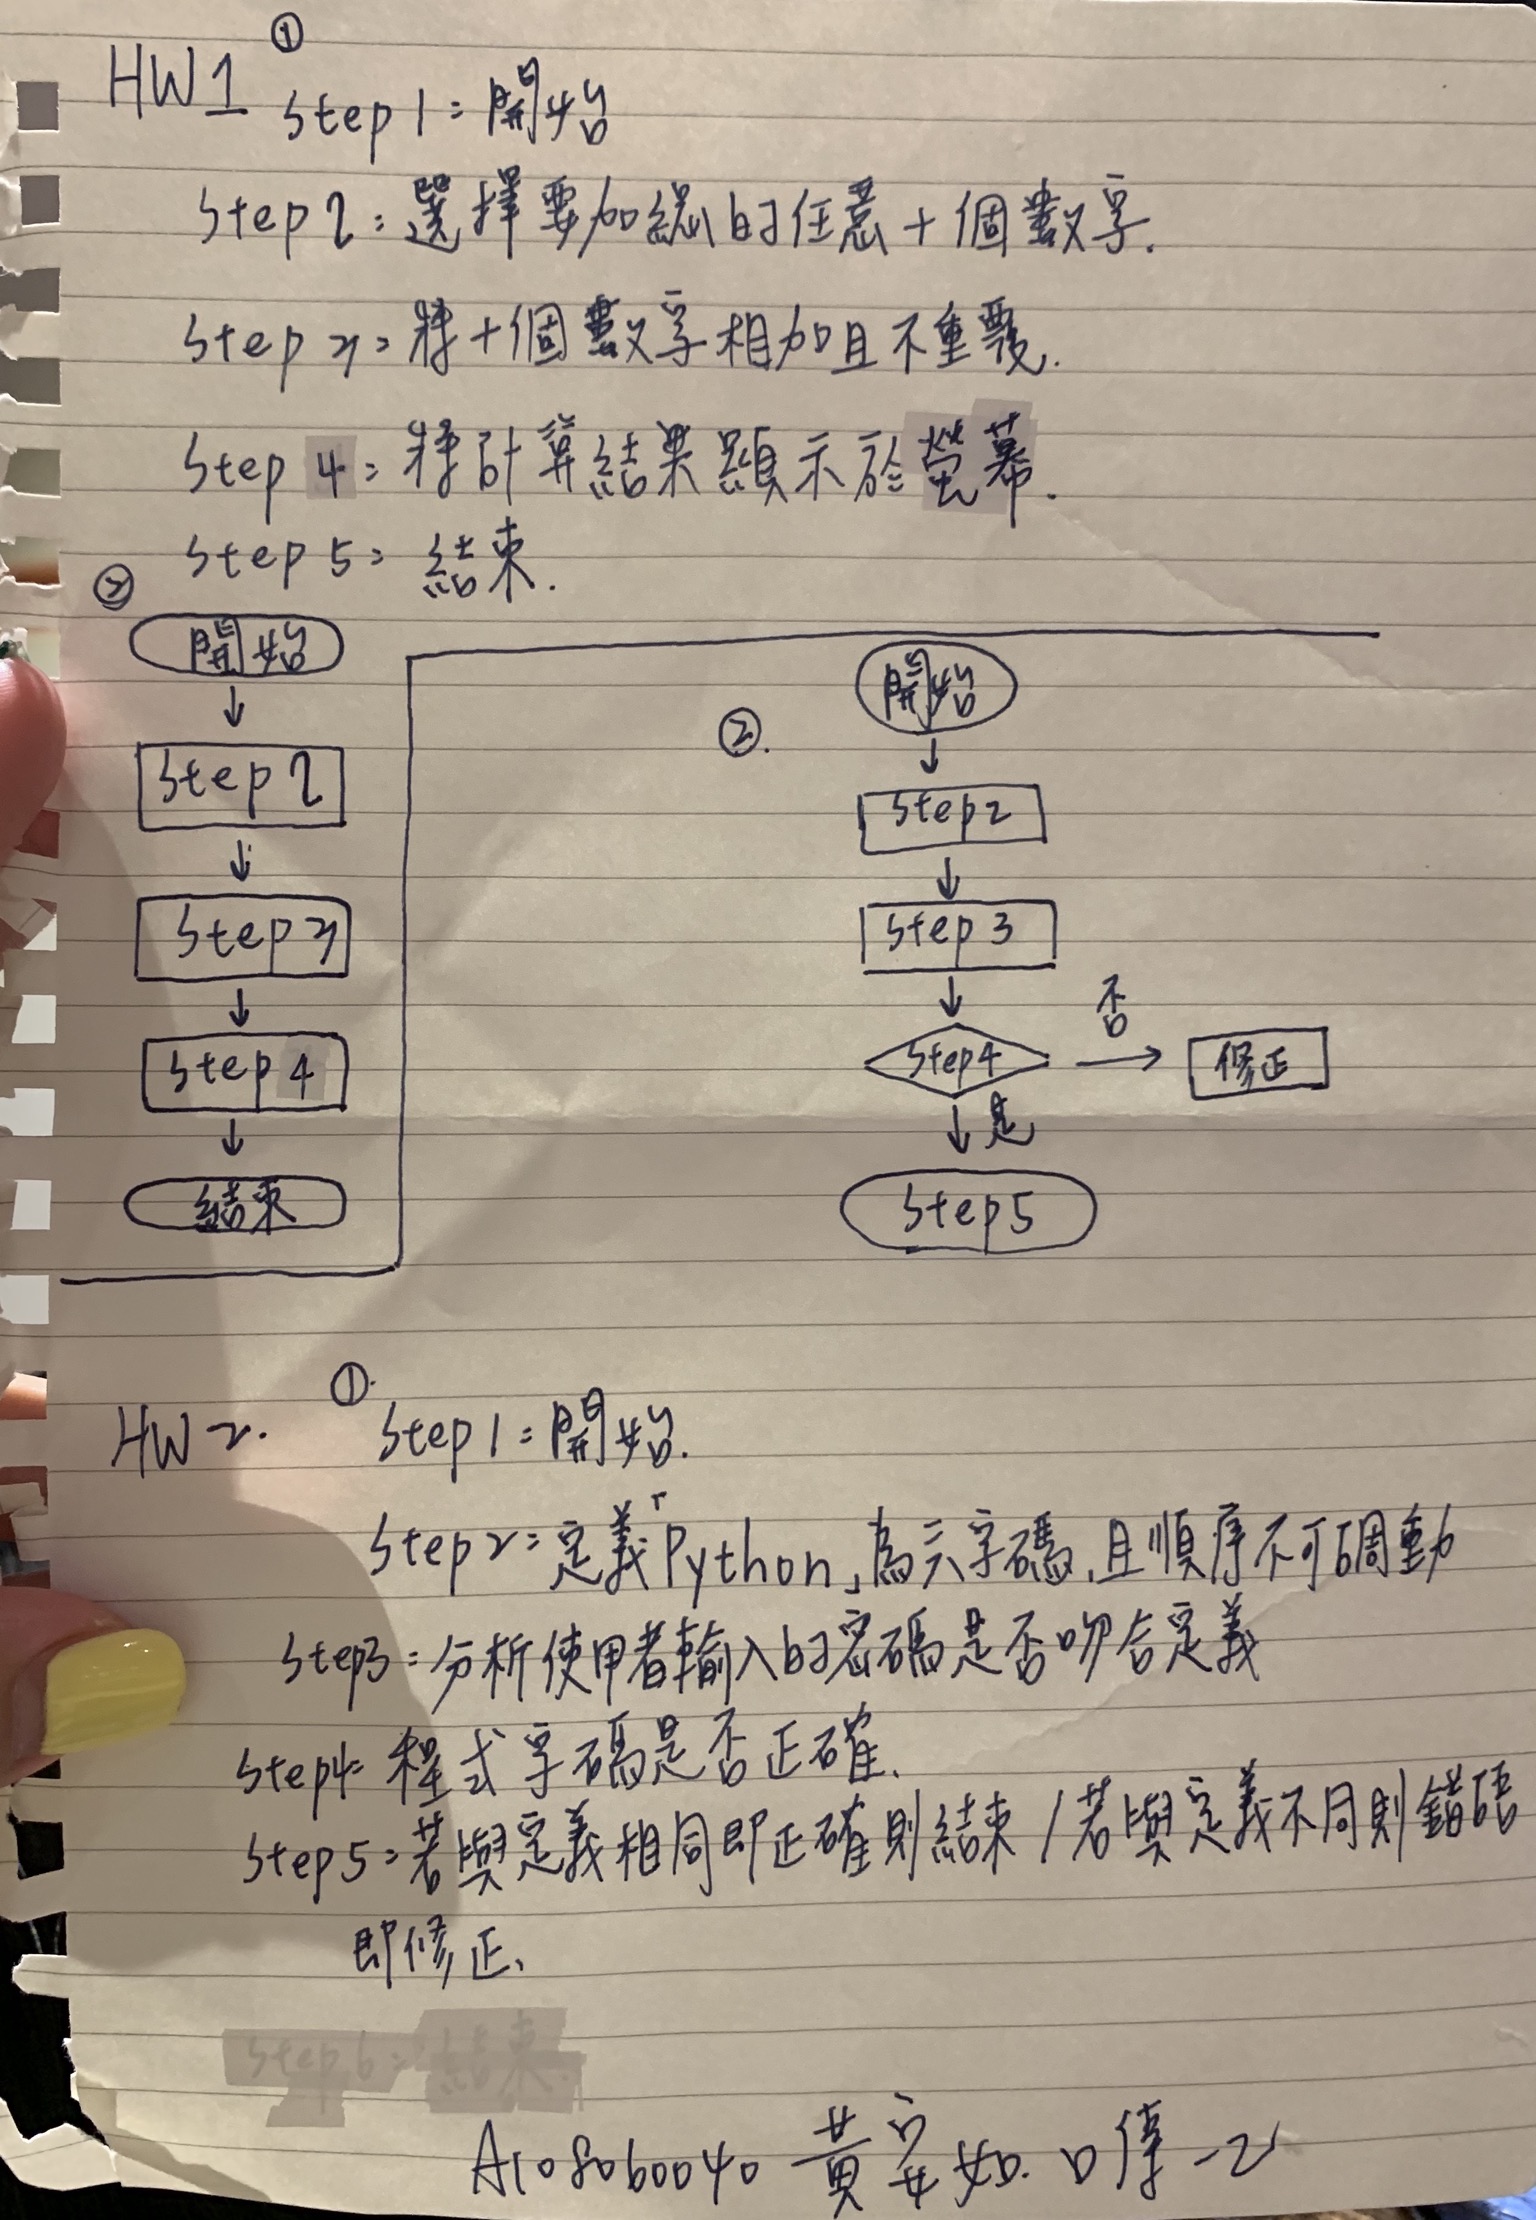 HW1 ① Step1:開始
Step2:選擇要加總的任意十個數字.
Step3:將十個數字相加且不重覆.
Step4:將計算結果顯示於螢幕.
Step5:結束.
②
開始
Step2
Step3
Step4
結束
②.
開始
Step2
Step3
Step4 否 修正
是
Step5
HW2. ①. Step1:開始.
Step2:定義「Python」為六字碼,且順序不可調動
Step3:分析使用者輸入的密碼是否吻合定義
Step4:程式字碼是否正確.
Step5:若與定義相同即正確則結束/若與定義不同則錯誤
即修正.
Step6:結束.
A108060040 黃安如.口傳一乙